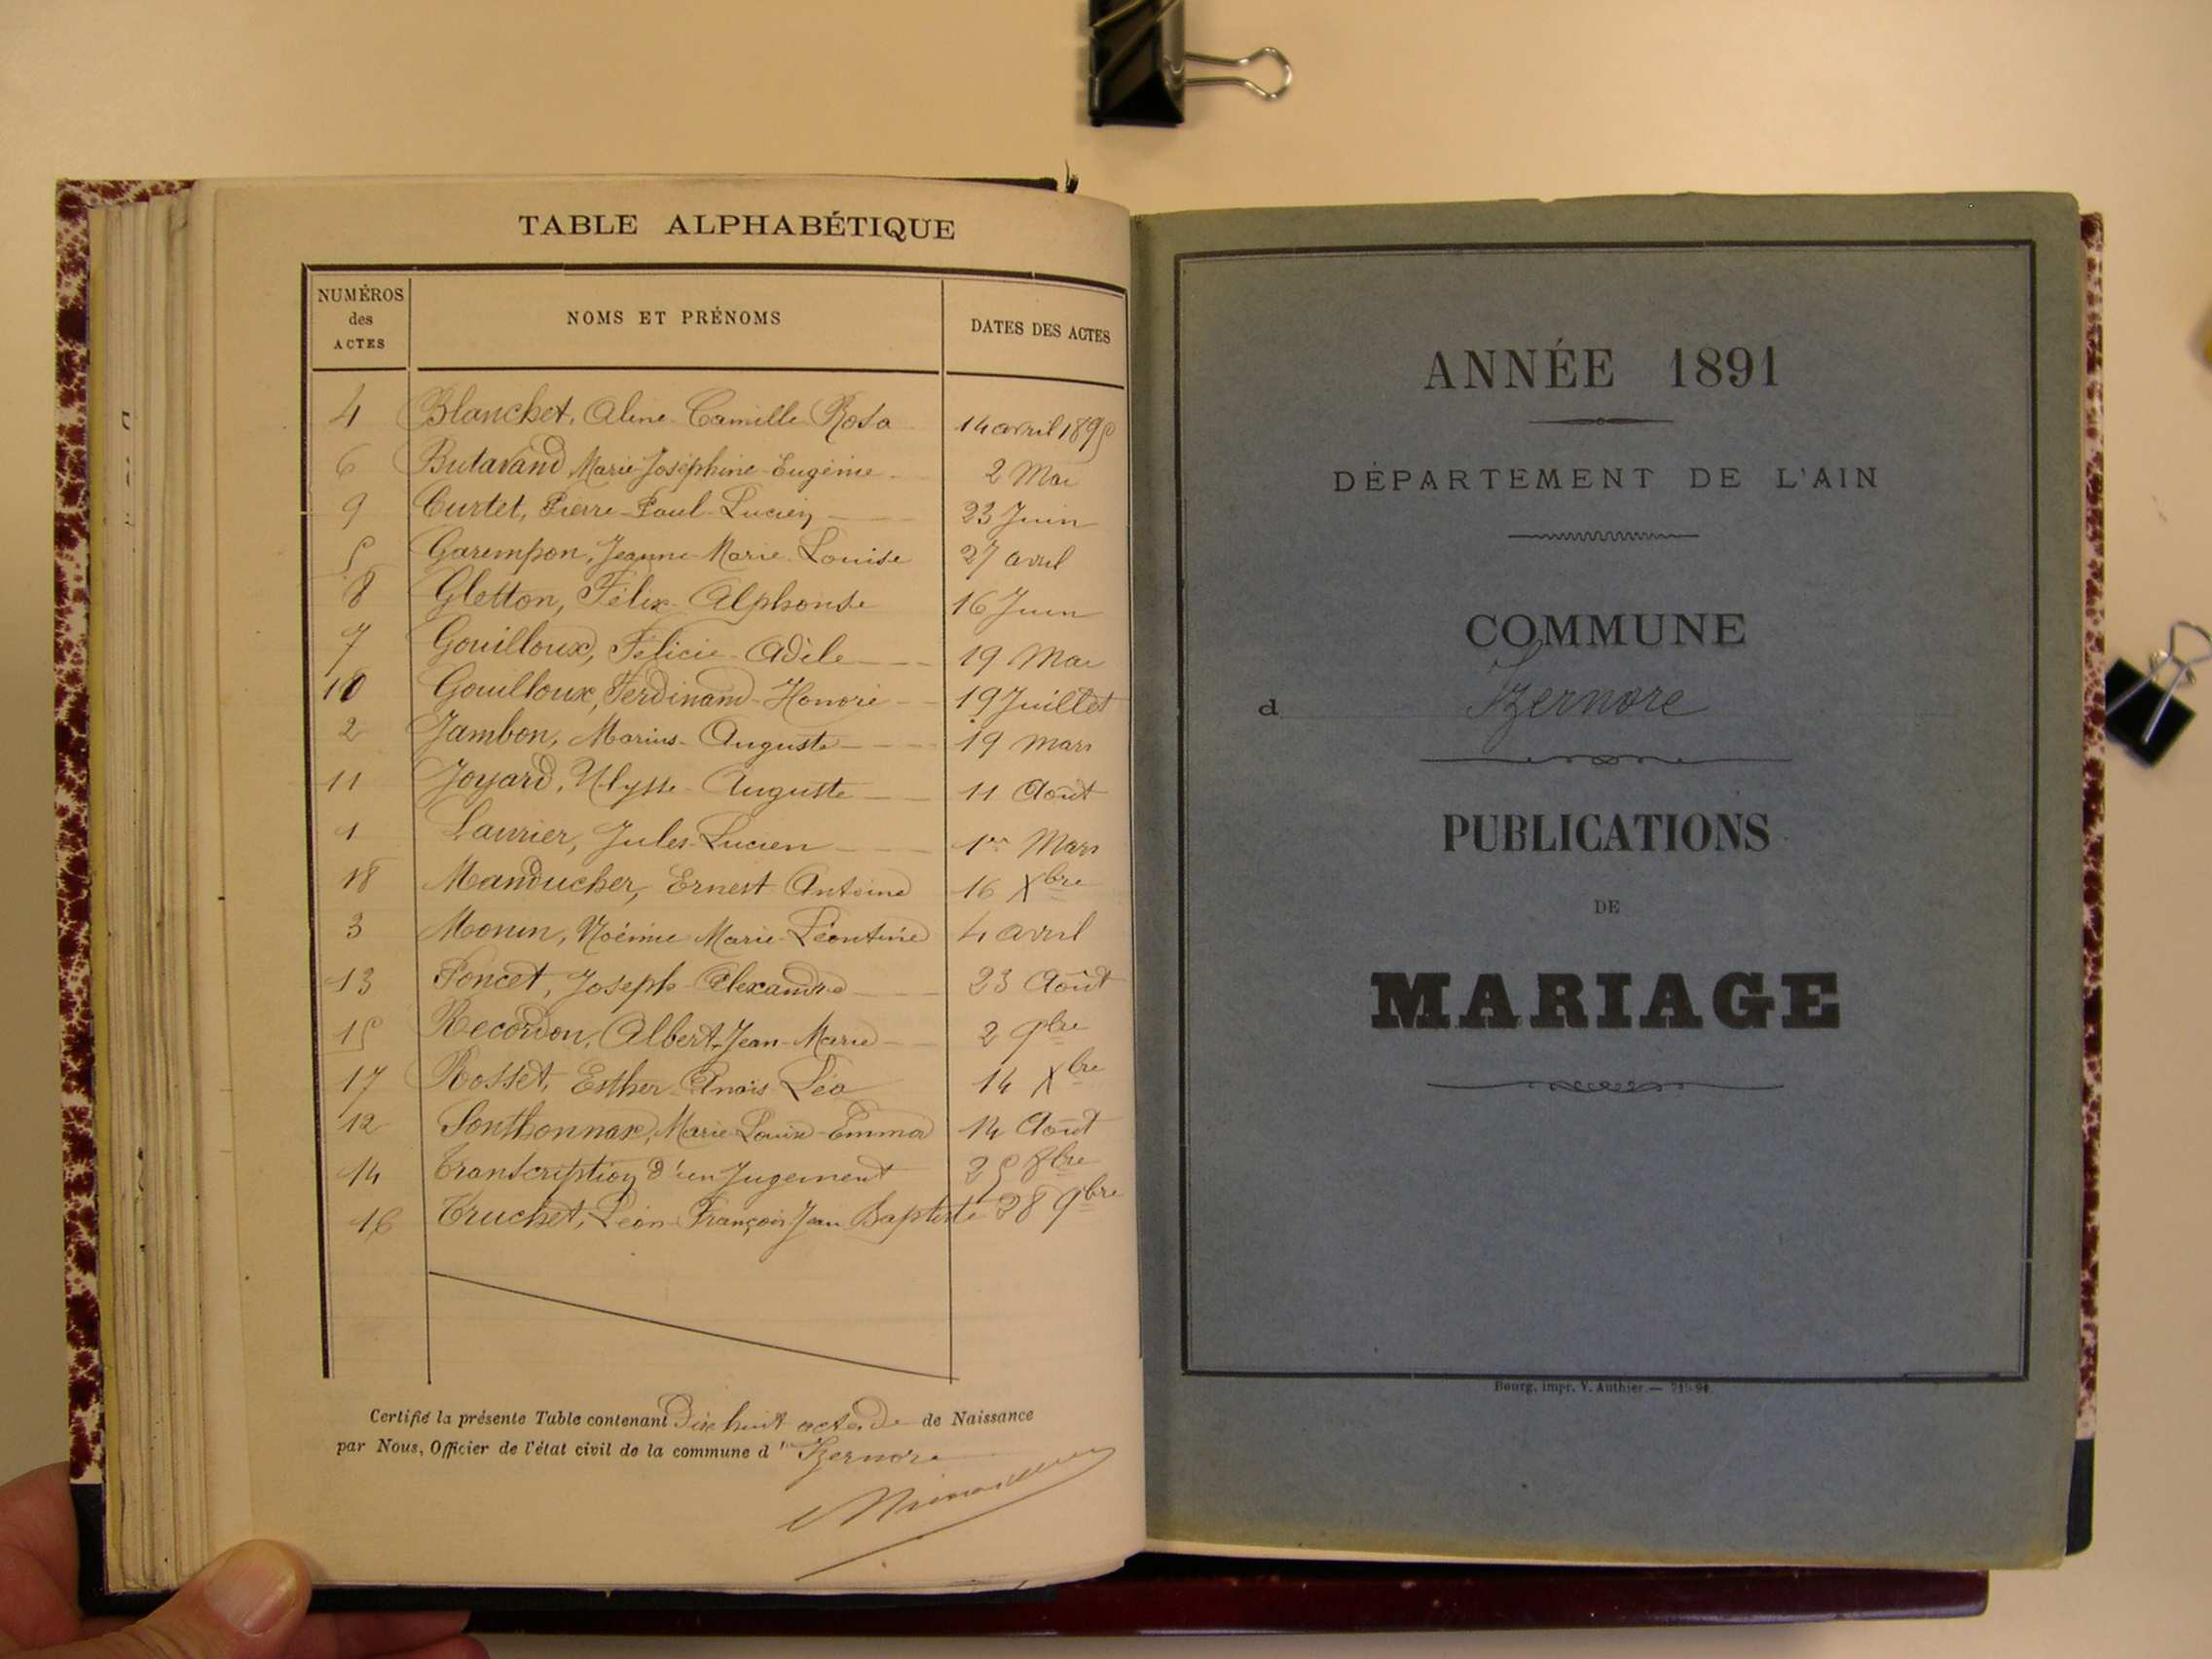 TABLE ALPHABÉTIQUE
NUMÉROS des ACTES NOMS ET PRÉNOMS DATES DES ACTES
4 Blanchet, Aline Camille Rosa 14 avril 1895
6 Butavand Marie Joséphine Eugénie 2 Mai
9 Curtet, Pierre Paul Lucien 23 Juin
5 Garempon, Jeanne Marie Louise 27 avril
8 Gletton, Félix Alphonse 16 Juin
7 Gouilloux, Félicie Adèle 19 Mai
10 Gouilloux, Ferdinand Honoré 19 Juillet
2 Jambon, Marius Auguste 19 mars
11 Joyard, Ulysse Auguste 11 Août
1 Laurier, Jules Lucien 1er Mars
18 Manducher, Ernest Antoine 16 Xbre
3 Monin, Noémie Marie Léontine 4 avril
13 Poncet, Joseph Alexandre 23 Août
15 Recordon, Albert Jean Marie 2 9bre
17 Rosset, Esther Anaïs Léa 14 Xbre
12 Sonthonnax, Marie Louise Emma 14 Août
14 Transcription d'un Jugement 25 8bre
16 Truchet, Léon François Jean Baptiste 28 9bre
Certifié la présente Table contenant Dix huit actes de de Naissance
par Nous, Officier de l'état civil de la commune d'Izernore
ANNÉE 1891
DÉPARTEMENT DE L'AIN
COMMUNE
d Izernore
PUBLICATIONS
DE
MARIAGE
Bourg, impr. V. Authier. —